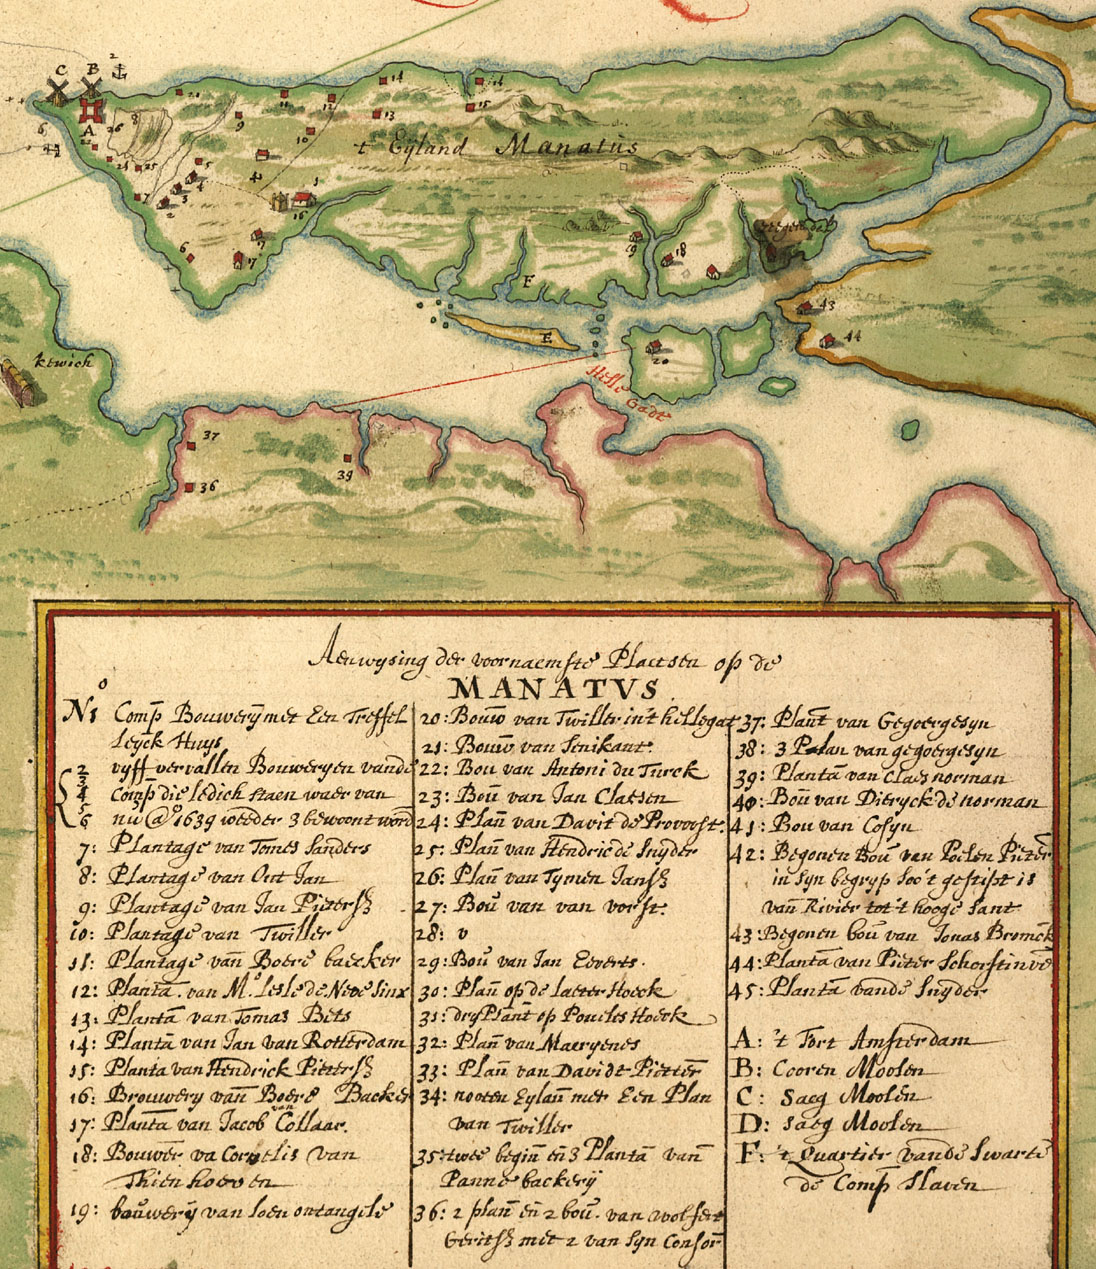 C
B
2
A
't Eyland Manatus
F
E
Hellegadt
ktwich
37
39
36
43
44
20
18
19
16
Aenwysing der voornaemste Plaetsen op de
MANATVS
No 1 Comp Bouwery met Een Treffel
leyck Huys
2 vyff vervallen Bouweryen vande
3
4 Comp die ledich staen waer van
5
6 nu Ao 1639 weeder 3 bewoont word
7: Plantage van Tomes Sanders
8: Plantage van Out Jan
9: Plantage van Jan Pieterss
10: Plantage van Twiller
11: Plantage van Boere backer
12: Planta. van Mr Lesle de Neve Sinx
13: Planta van Tomas Bets
14: Planta van Jan van Rotterdam
15: Planta van Hendrick Pieterss
16: Brouwery van Boere Backer
17: Planta van Jacob van Collaar.
18: Bouwer va Cornelis van
Thienhoeven
19: bouwery van loen ontangele
20: Bouw van Twiller in't hellegat
21: Bouw van Senikant.
22: Bou van Antoni du Turck
23: Bou van Jan Claesen
24: Plan van Davit de Provoost.
25: Plan van Hendric de Snyder
26: Plan van Tymen Janss
27: Bou van van vorst.
28: v
29: Bou van Jan Eeverts.
30: Plan op de Laeter Hoeck
31: dry Plant op Poueles Hoeck
32: Plan van Maeryenes
33: Plan van Davidt Pietter
34: nooten Eylan met Een Plan
van Twiller
35: twee begin en 3 Planta van
Pannebackery
36: 2 plan en 2 bou. van Wolfert
Geritss met 2 van Syn Consor
37: Plant van Gegoergesyn
38: 3 Plan van gegoergesyn
39: Planta van Claes norman
40: Bou van Dieryck de norman
41: Bou van Cosyn
42: Begonen Bou van Poelen Pieter
in Syn begryp soo't gestipt is
van Rivier tot 't hooge Lant
43: Begonen bou van Jonas Bromck
44: Planta van Pieter Schorstinve
45: Planta vande Snyder
A: 't Fort Amsterdam
B: Cooren Moolen
C: Saeg Moolen
D: Saeg Moolen
F: 't Quartier vande Swarte
de Comp Slaven